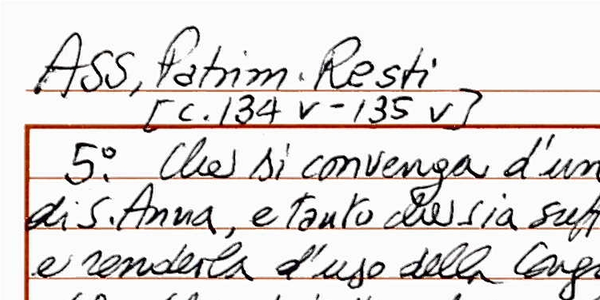 ASS, Patrim. Resti
[c. 134 v - 135 v]
5º. Che si convenga d'un
di S. Anna, e tanto che sia suff
e renderla d'uso della Congr